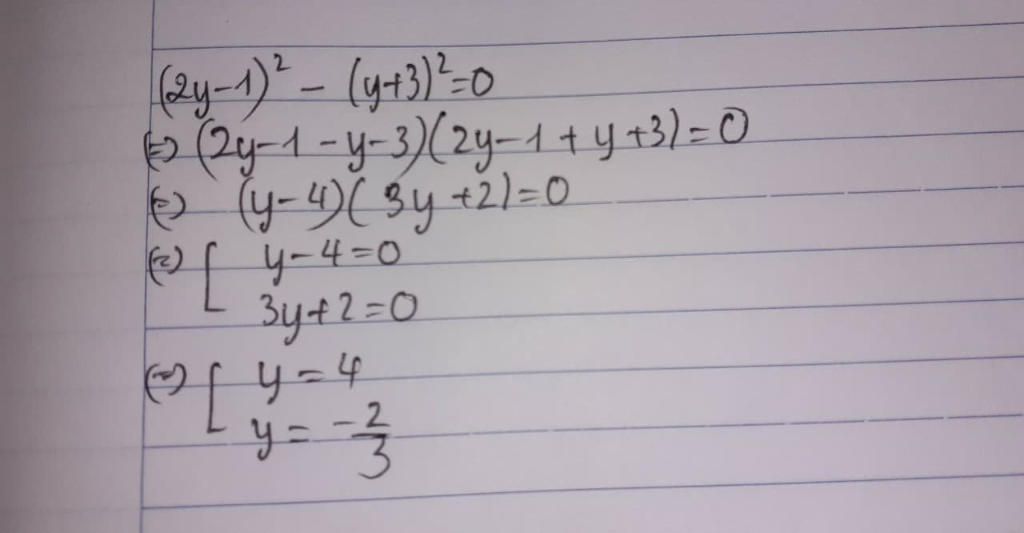 (2y-1)² - (y+3)²=0
⇔ (2y-1-y-3)(2y-1+y+3)=0
⇔ (y-4)(3y+2)=0
⇔ [ y-4=0
3y+2=0
⇔ [ y=4
y= -2/3